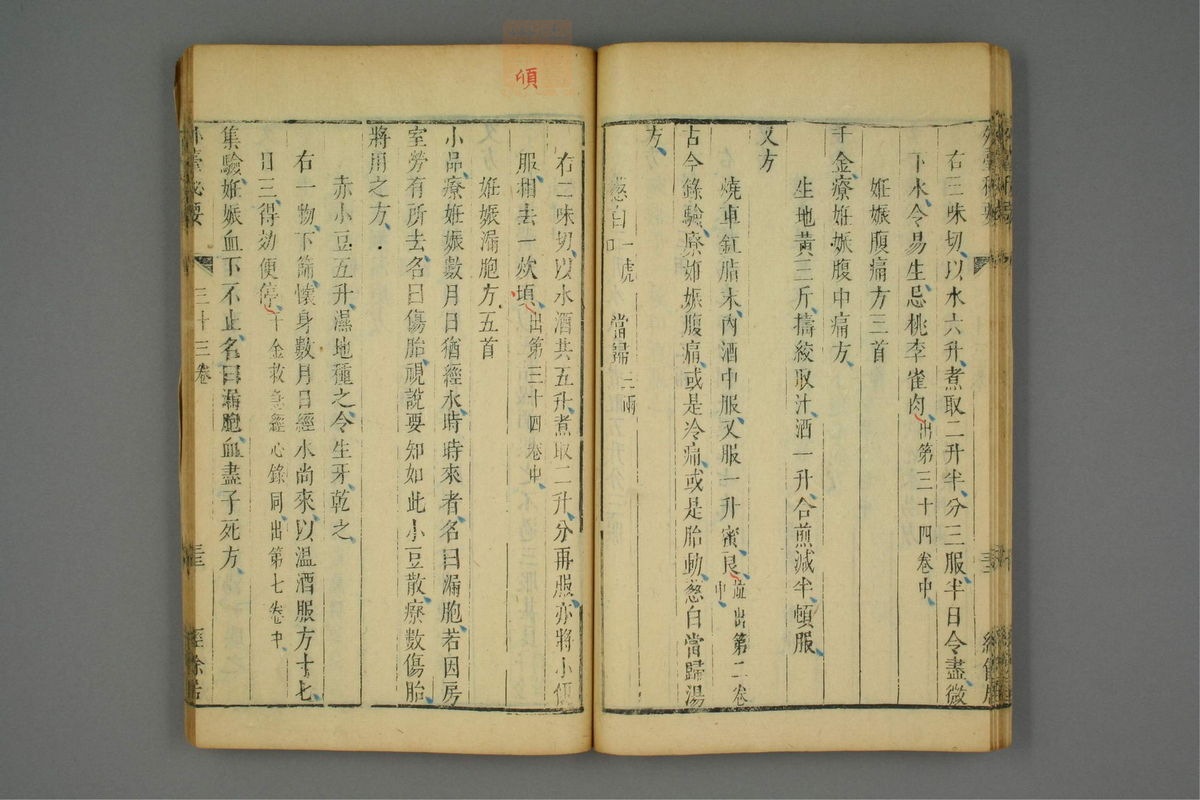 右三味切以水六升煮取二升半分三服半日令盡微
下水令易生忌桃李雀肉出第三十四卷中
妊娠腹痛方三首
千金療妊娠腹中痛方
生地黃三斤擣絞取汁酒一升合煎減半頓服
又方
燒車釭脂末內酒中服又服一升蜜良並出第二卷中
古今錄驗療妊娠腹痛或是冷痛或是胎動葱白當歸湯
方
葱白一虎口 當歸三兩
右二味切以水酒共五升煮取二升分再服亦將小便
服相去一炊頃出第三十四卷中
妊娠漏胞方五首
小品療妊娠數月日猶經水時時來者名曰漏胞若因房
室勞有所去名曰傷胎視說要知如此小豆散療數傷胎
將用之方
赤小豆五升濕地種之令生牙乾之
右一物下篩懷身數月日經水尚來以溫酒服方寸七
日三得効便停千金救急經心錄同出第七卷中
集驗妊娠血下不止名曰漏胞血盡子死方
外臺秘要 三十三卷 經餘居
頃